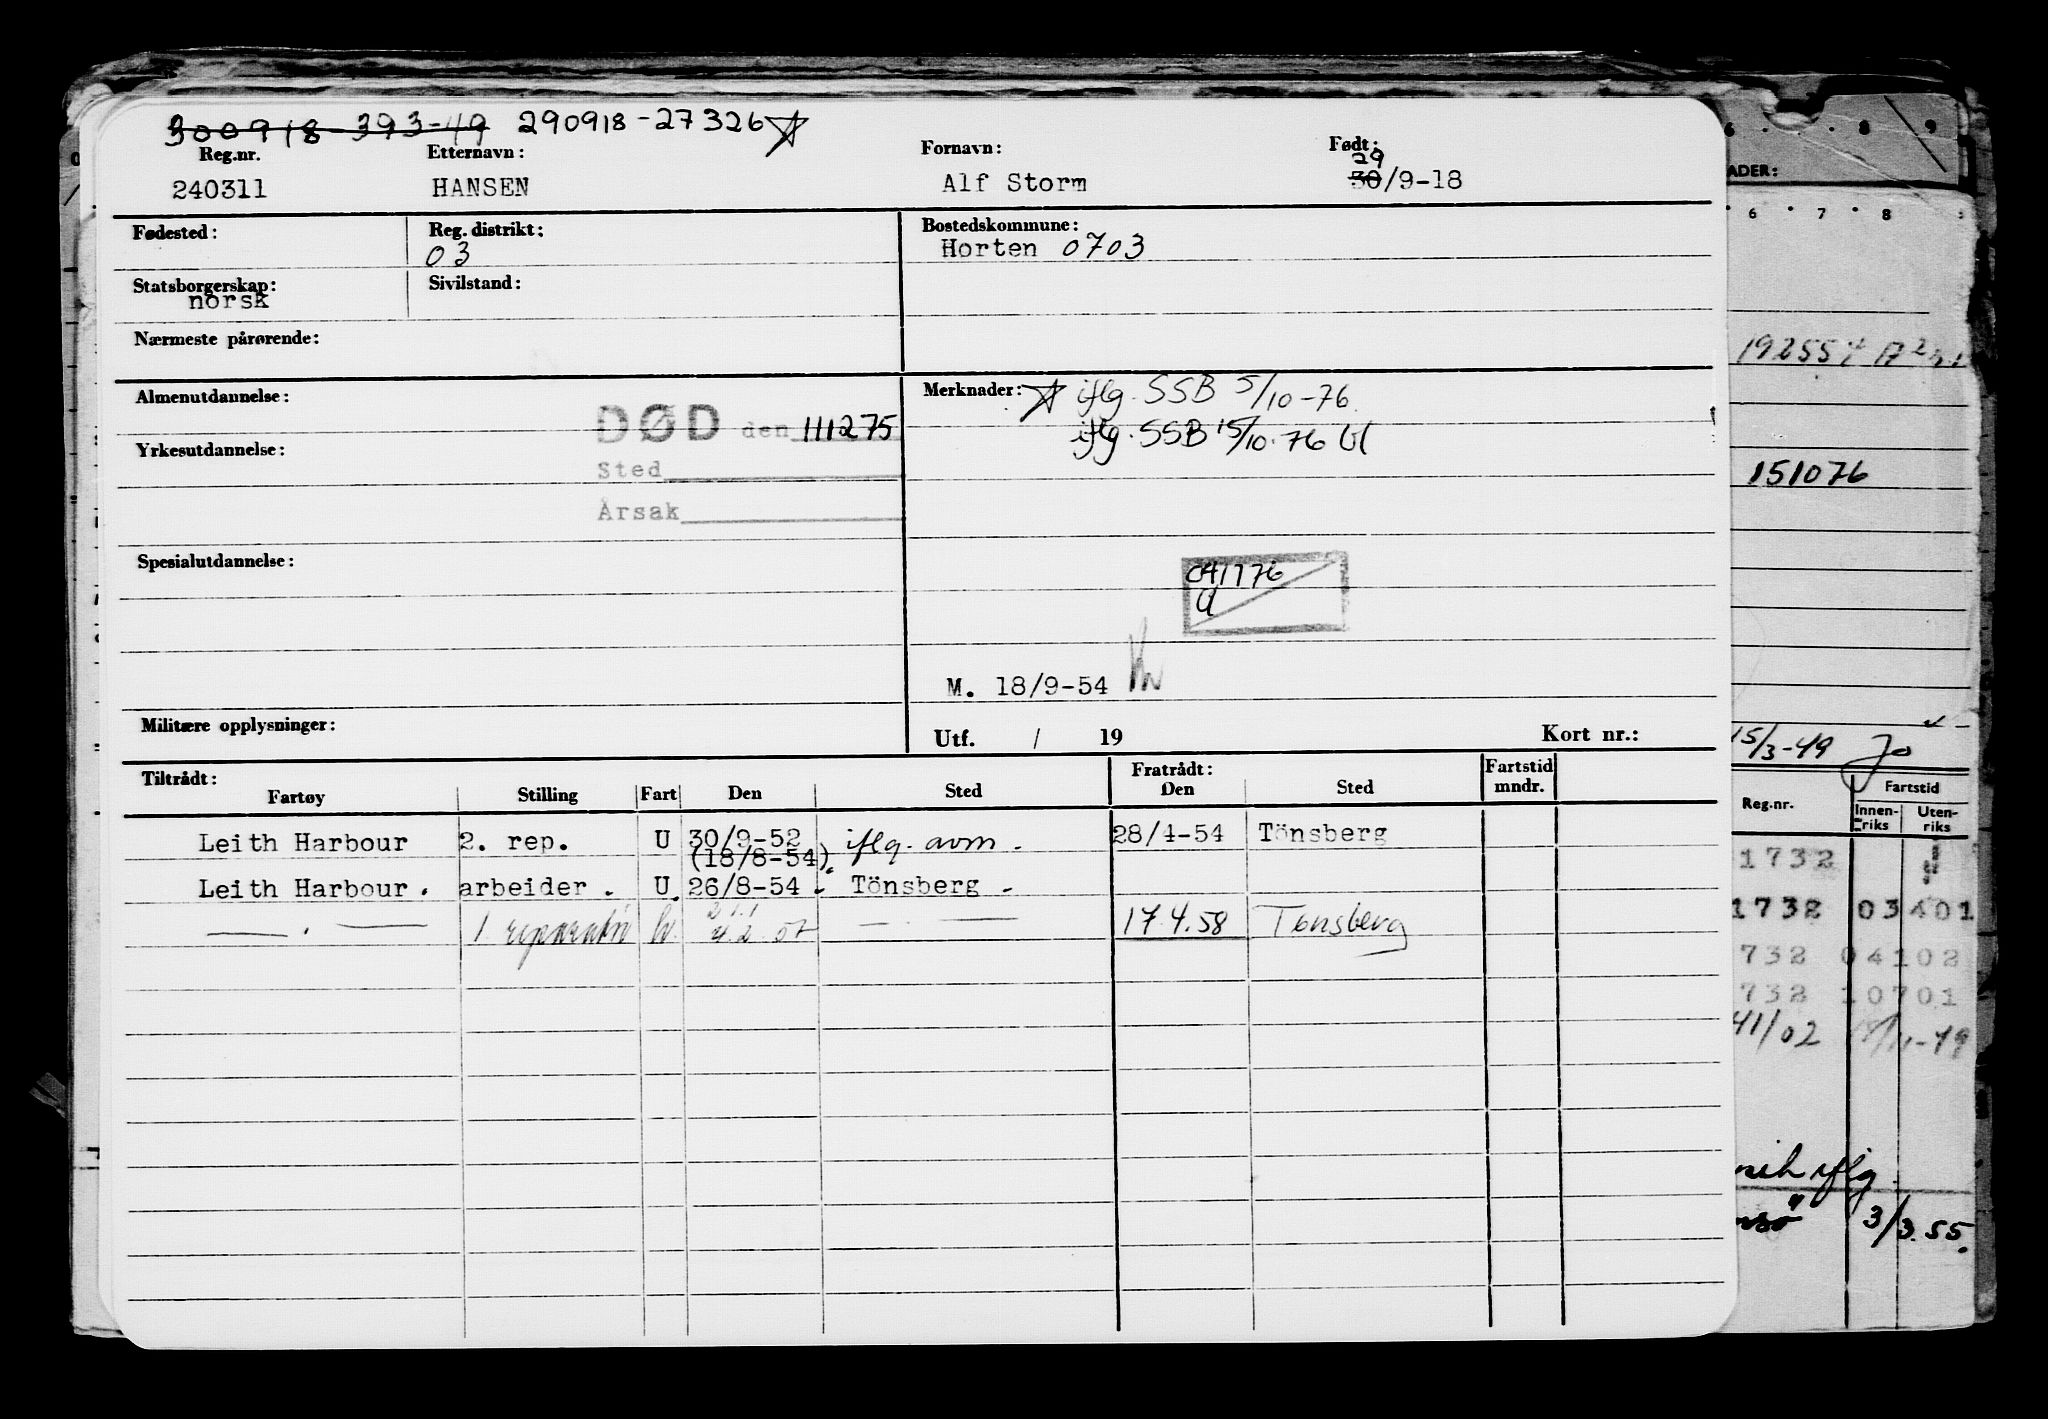 300918-393-49 290918-27326
Reg.nr. Etternavn: Fornavn: Født:
29
240311 HANSEN Alf Storm 30/9-18
Fødested: Reg. distrikt: Bostedskommune:
03 Horten 0703
Statsborgerskap: Sivilstand:
norsk
Nærmeste pårørende:
Almenutdannelse: Merknader: iflg. SSB 5/10-76
DØD den 111275 iflg. SSB 15/10-76
Yrkesutdannelse:
Sted
Årsak
Spesialutdannelse:
041176
M. 18/9-54
Militære opplysninger: Utf. / 19 Kort nr.:
Tiltrådt: Fratrådt: Fartstid
Fartøy Stilling Fart Den Sted Den Sted mndr.
Leith Harbour 2. rep. U 30/9-52 iflg. avm. 28/4-54 Tönsberg
(18/8-54).
Leith Harbour. arbeider. U. 26/8-54 Tönsberg
— " — 1 reparatør — " — 17.4.58 Tønsberg
6 8 9
ADER:
6 7 8
151076
15/3-49 Jo
Reg.nr. Fartstid
Innenriks Utenriks
1732
1732 03 401
732 04102
732 10701
41/02
iflg.
3/3.55.